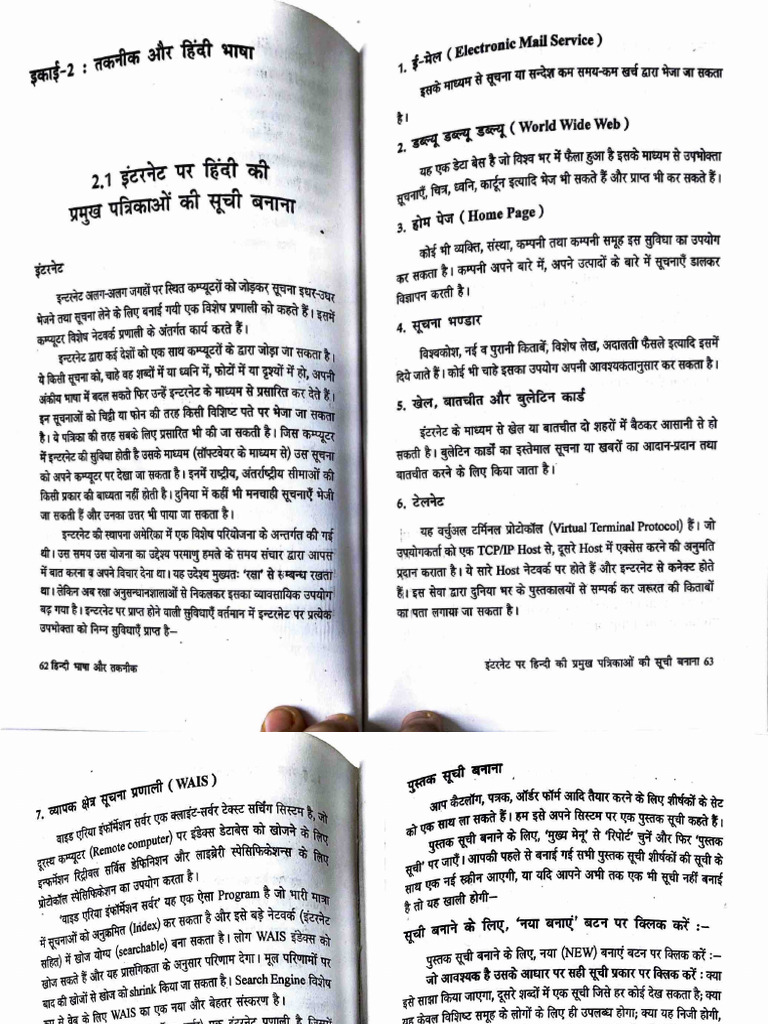 इकाई-2 : तकनीक और हिंदी भाषा
2.1 इंटरनेट पर हिंदी की
प्रमुख पत्रिकाओं की सूची बनाना
इंटरनेट
इन्टरनेट अलग-अलग जगहों पर स्थित कम्प्यूटरों को जोड़कर सूचना इधर-उधर
भेजने तथा सूचना लेने के लिए बनाई गयी एक विशेष प्रणाली को कहते हैं। इसमें
कम्प्यूटर विशेष नेटवर्क प्रणाली के अंतर्गत कार्य करते हैं।
इन्टरनेट द्वारा कई देशों को एक साथ कम्प्यूटरों के द्वारा जोड़ा जा सकता है।
ये किसी सूचना को, चाहे वह शब्दों में या ध्वनि में, फोटों में या दृश्यों में हो, अपनी
अंकीय भाषा में बदल सकते फिर उन्हें इन्टरनेट के माध्यम से प्रसारित कर देते हैं।
इन सूचनाओं को चिट्ठी या फोन की तरह किसी विशिष्ट पते पर भेजा जा सकता
है। ये पत्रिका की तरह सबके लिए प्रसारित भी की जा सकती है। जिस कम्प्यूटर
में इन्टरनेट की सुविधा होती है उसके माध्यम (सॉफ्टवेयर के माध्यम से) उस सूचना
को अपने कम्प्यूटर पर देखा जा सकता है। इनमें राष्ट्रीय, अंतर्राष्ट्रीय सीमाओं की
किसी प्रकार की बाध्यता नहीं होती है। दुनिया में कहीं भी मनचाही सूचनाएँ भेजी
जा सकती हैं और उनका उत्तर भी पाया जा सकता है।
इन्टरनेट की स्थापना अमेरिका में एक विशेष परियोजना के अन्तर्गत की गई
थी। उस समय उस योजना का उद्देश्य परमाणु हमले के समय संचार द्वारा आपस
में बात करना व अपने विचार देना था। यह उद्देश्य मुख्यतः 'रक्षा' से सम्बन्ध रखता
था। लेकिन अब रक्षा अनुसन्धानशालाओं से निकलकर इसका व्यावसायिक उपयोग
बढ़ गया है। इन्टरनेट पर प्राप्त होने वाली सुविधाएँ वर्तमान में इन्टरनेट पर प्रत्येक
उपभोक्ता को निम्न सुविधाएँ प्राप्त है–
62 हिन्दी भाषा और तकनीक
1. ई-मेल ( Electronic Mail Service )
इसके माध्यम से सूचना या सन्देश कम समय-कम खर्च द्वारा भेजा जा सकता
है।
2. डब्ल्यू डब्ल्यू डब्ल्यू ( World Wide Web )
यह एक डेटा बेस है जो विश्व भर में फैला हुआ है इसके माध्यम से उपभोक्ता
सूचनाएँ, चित्र, ध्वनि, कार्टून इत्यादि भेज भी सकते हैं और प्राप्त भी कर सकते हैं।
3. होम पेज ( Home Page )
कोई भी व्यक्ति, संस्था, कम्पनी तथा कम्पनी समूह इस सुविधा का उपयोग
कर सकता है। कम्पनी अपने बारे में, अपने उत्पादों के बारे में सूचनाएँ डालकर
विज्ञापन करती है।
4. सूचना भण्डार
विश्वकोश, नई व पुरानी किताबें, विशेष लेख, अदालती फैसले इत्यादि इसमें
दिये जाते हैं। कोई भी चाहे इसका उपयोग अपनी आवश्यकतानुसार कर सकता है।
5. खेल, बातचीत और बुलेटिन कार्ड
इंटरनेट के माध्यम से खेल या बातचीत दो शहरों में बैठकर आसानी से हो
सकती है। बुलेटिन कार्डों का इस्तेमाल सूचना या खबरों का आदान-प्रदान तथा
बातचीत करने के लिए किया जाता है।
6. टेलनेट
यह वर्चुअल टर्मिनल प्रोटोकॉल (Virtual Terminal Protocol) हैं। जो
उपयोगकर्ता को एक TCP/IP Host से, दूसरे Host में एक्सेस करने की अनुमति
प्रदान कराता है। ये सारे Host नेटवर्क पर होते हैं और इन्टरनेट से कनेक्ट होते
हैं। इस सेवा द्वारा दुनिया भर के पुस्तकालयों से सम्पर्क कर जरूरत की किताबों
का पता लगाया जा सकता है।
इंटरनेट पर हिन्दी की प्रमुख पत्रिकाओं की सूची बनाना 63
7. व्यापक क्षेत्र सूचना प्रणाली ( WAIS )
वाइड एरिया इंफॉर्मेशन सर्वर एक क्लाइंट-सर्वर टेक्स्ट सर्चिंग सिस्टम है, जो
दूरस्थ कम्प्यूटर (Remote computer) पर इंडेक्स डेटाबेस को खोजने के लिए
इन्फर्मेशन रिट्रीवल सर्विस डेफिनिशन और लाइब्रेरी स्पेसिफिकेशन्स के लिए
प्रोटोकॉल स्पेसिफिकेशन का उपयोग करता है।
'वाइड एरिया इंफॉर्मेशन सर्वर' यह एक ऐसा Program है जो भारी मात्रा
में सूचनाओं को अनुक्रमित (Iridex) कर सकता है और इसे बड़े नेटवर्क (इंटरनेट
सहित) में खोज योग्य (searchable) बना सकता है। लोग WAIS इंडेक्स को
खोज सकते हैं और यह प्रासंगिकता के अनुसार परिणाम देगा। मूल परिणामों पर
बाद की खोजों से खोज को shrink किया जा सकता है। Search Engine विशेष
से वेब के लिए WAIS का एक नया और बेहतर संस्करण है।
एक इंटरनेट प्रणाली है जिसमें
पुस्तक सूची बनाना
आप कैटलॉग, पत्रक, ऑर्डर फॉर्म आदि तैयार करने के लिए शीर्षकों के सेट
को एक साथ ला सकते हैं। हम इसे अपने सिस्टम पर एक पुस्तक सूची कहते हैं।
पुस्तक सूची बनाने के लिए, 'मुख्य मेनू' से 'रिपोर्ट' चुनें और फिर 'पुस्तक
सूची' पर जाएँ। आपकी पहले से बनाई गई सभी पुस्तक सूची शीर्षकों की सूची के
साथ एक नई स्क्रीन आएगी, या यदि आपने अभी तक एक भी सूची नहीं बनाई
है तो यह खाली होगी–
सूची बनाने के लिए, 'नया बनाएं' बटन पर क्लिक करें :–
पुस्तक सूची बनाने के लिए, नया (NEW) बनाएं बटन पर क्लिक करें :–
जो आवश्यक है उसके आधार पर सही सूची प्रकार पर क्लिक करें : क्या
इसे साझा किया जाएगा, दूसरे शब्दों में एक सूची जिसे हर कोई देख सकता है; क्या
यह केवल विशिष्ट समूह के लोगों के लिए ही उपलब्ध होगा; क्या यह निजी होगी,